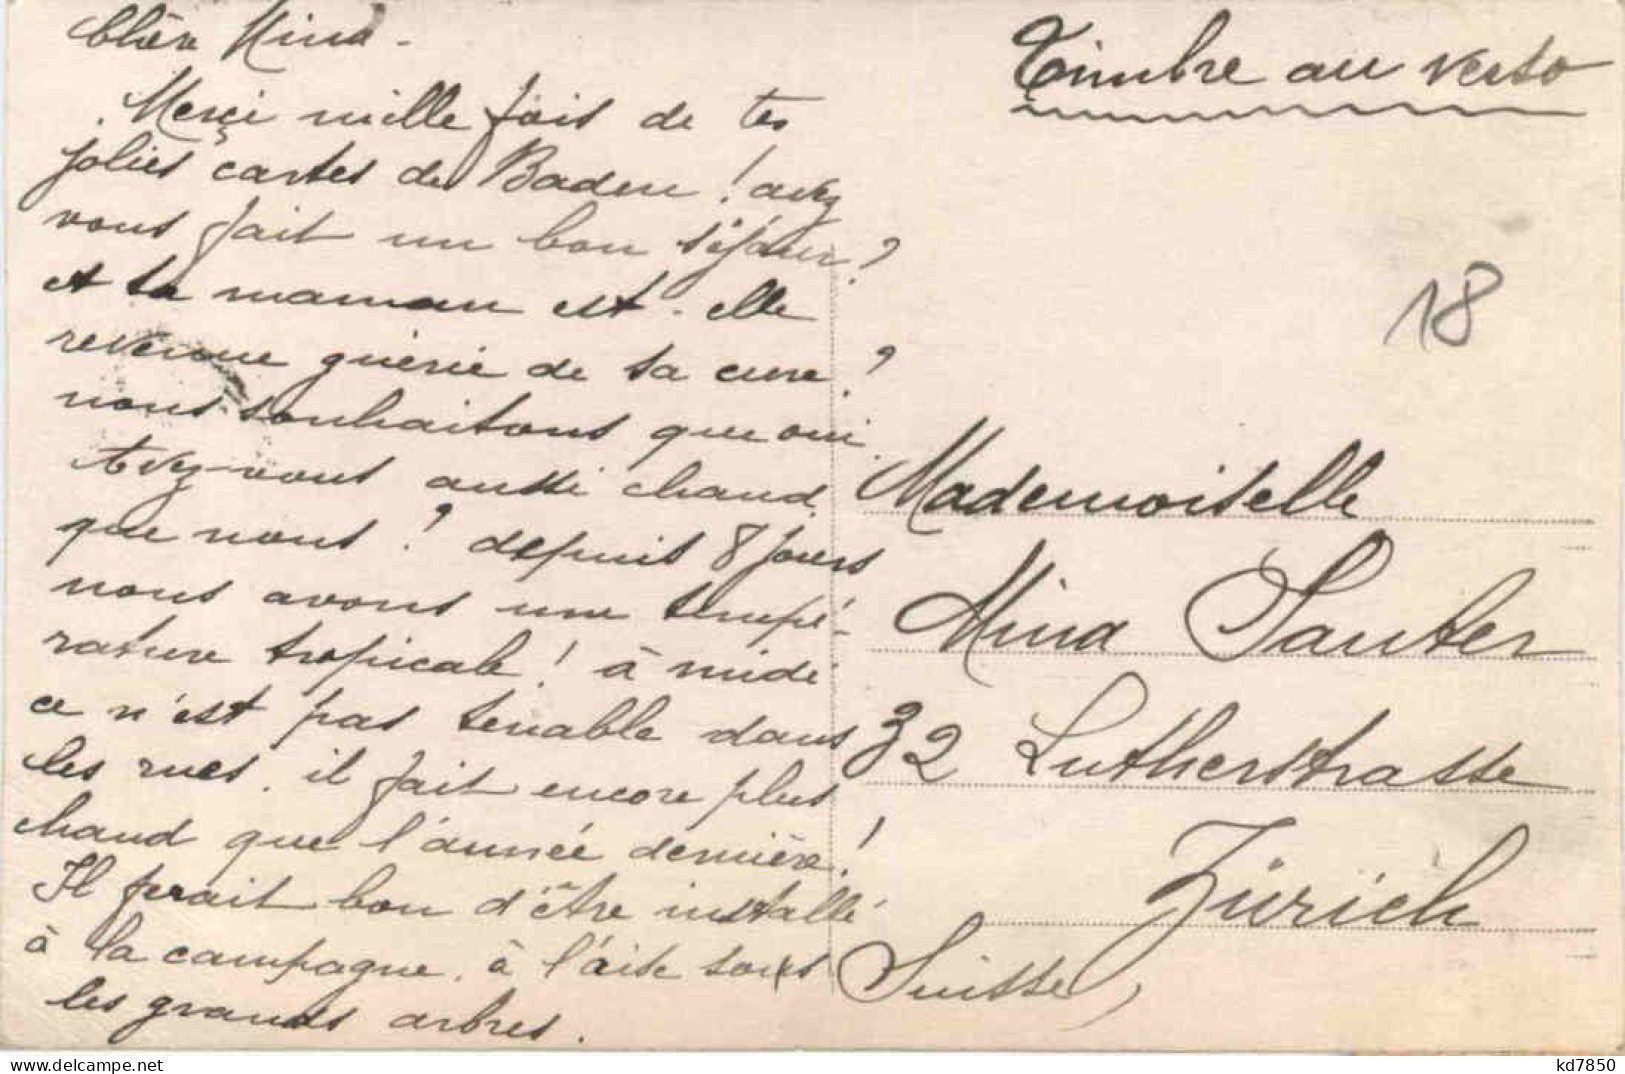 Chère Mina -
Merçi mille fois de tes
jolies cartes de Baden ! avez
vous fait un bon séjour ?
et ta maman est-elle
revenue guérie de sa cure ?
nous souhaitons que oui.
Avez-vous aussi chaud
que nous ? depuis 8 jours
nous avons une tempé-
rature tropicale ! à midi
ce n'est pas tenable dans
les rues. il fait encore plus
chaud que l'année dernière !
Il ferait bon d'être installé
à la campagne, à l'aise sous
les grands arbres.
Timbre au verso
18
Mademoiselle
Mina Sauter
32 Lutherstrasse
Zürich
Suisse
www.delcampe.net
kd7850